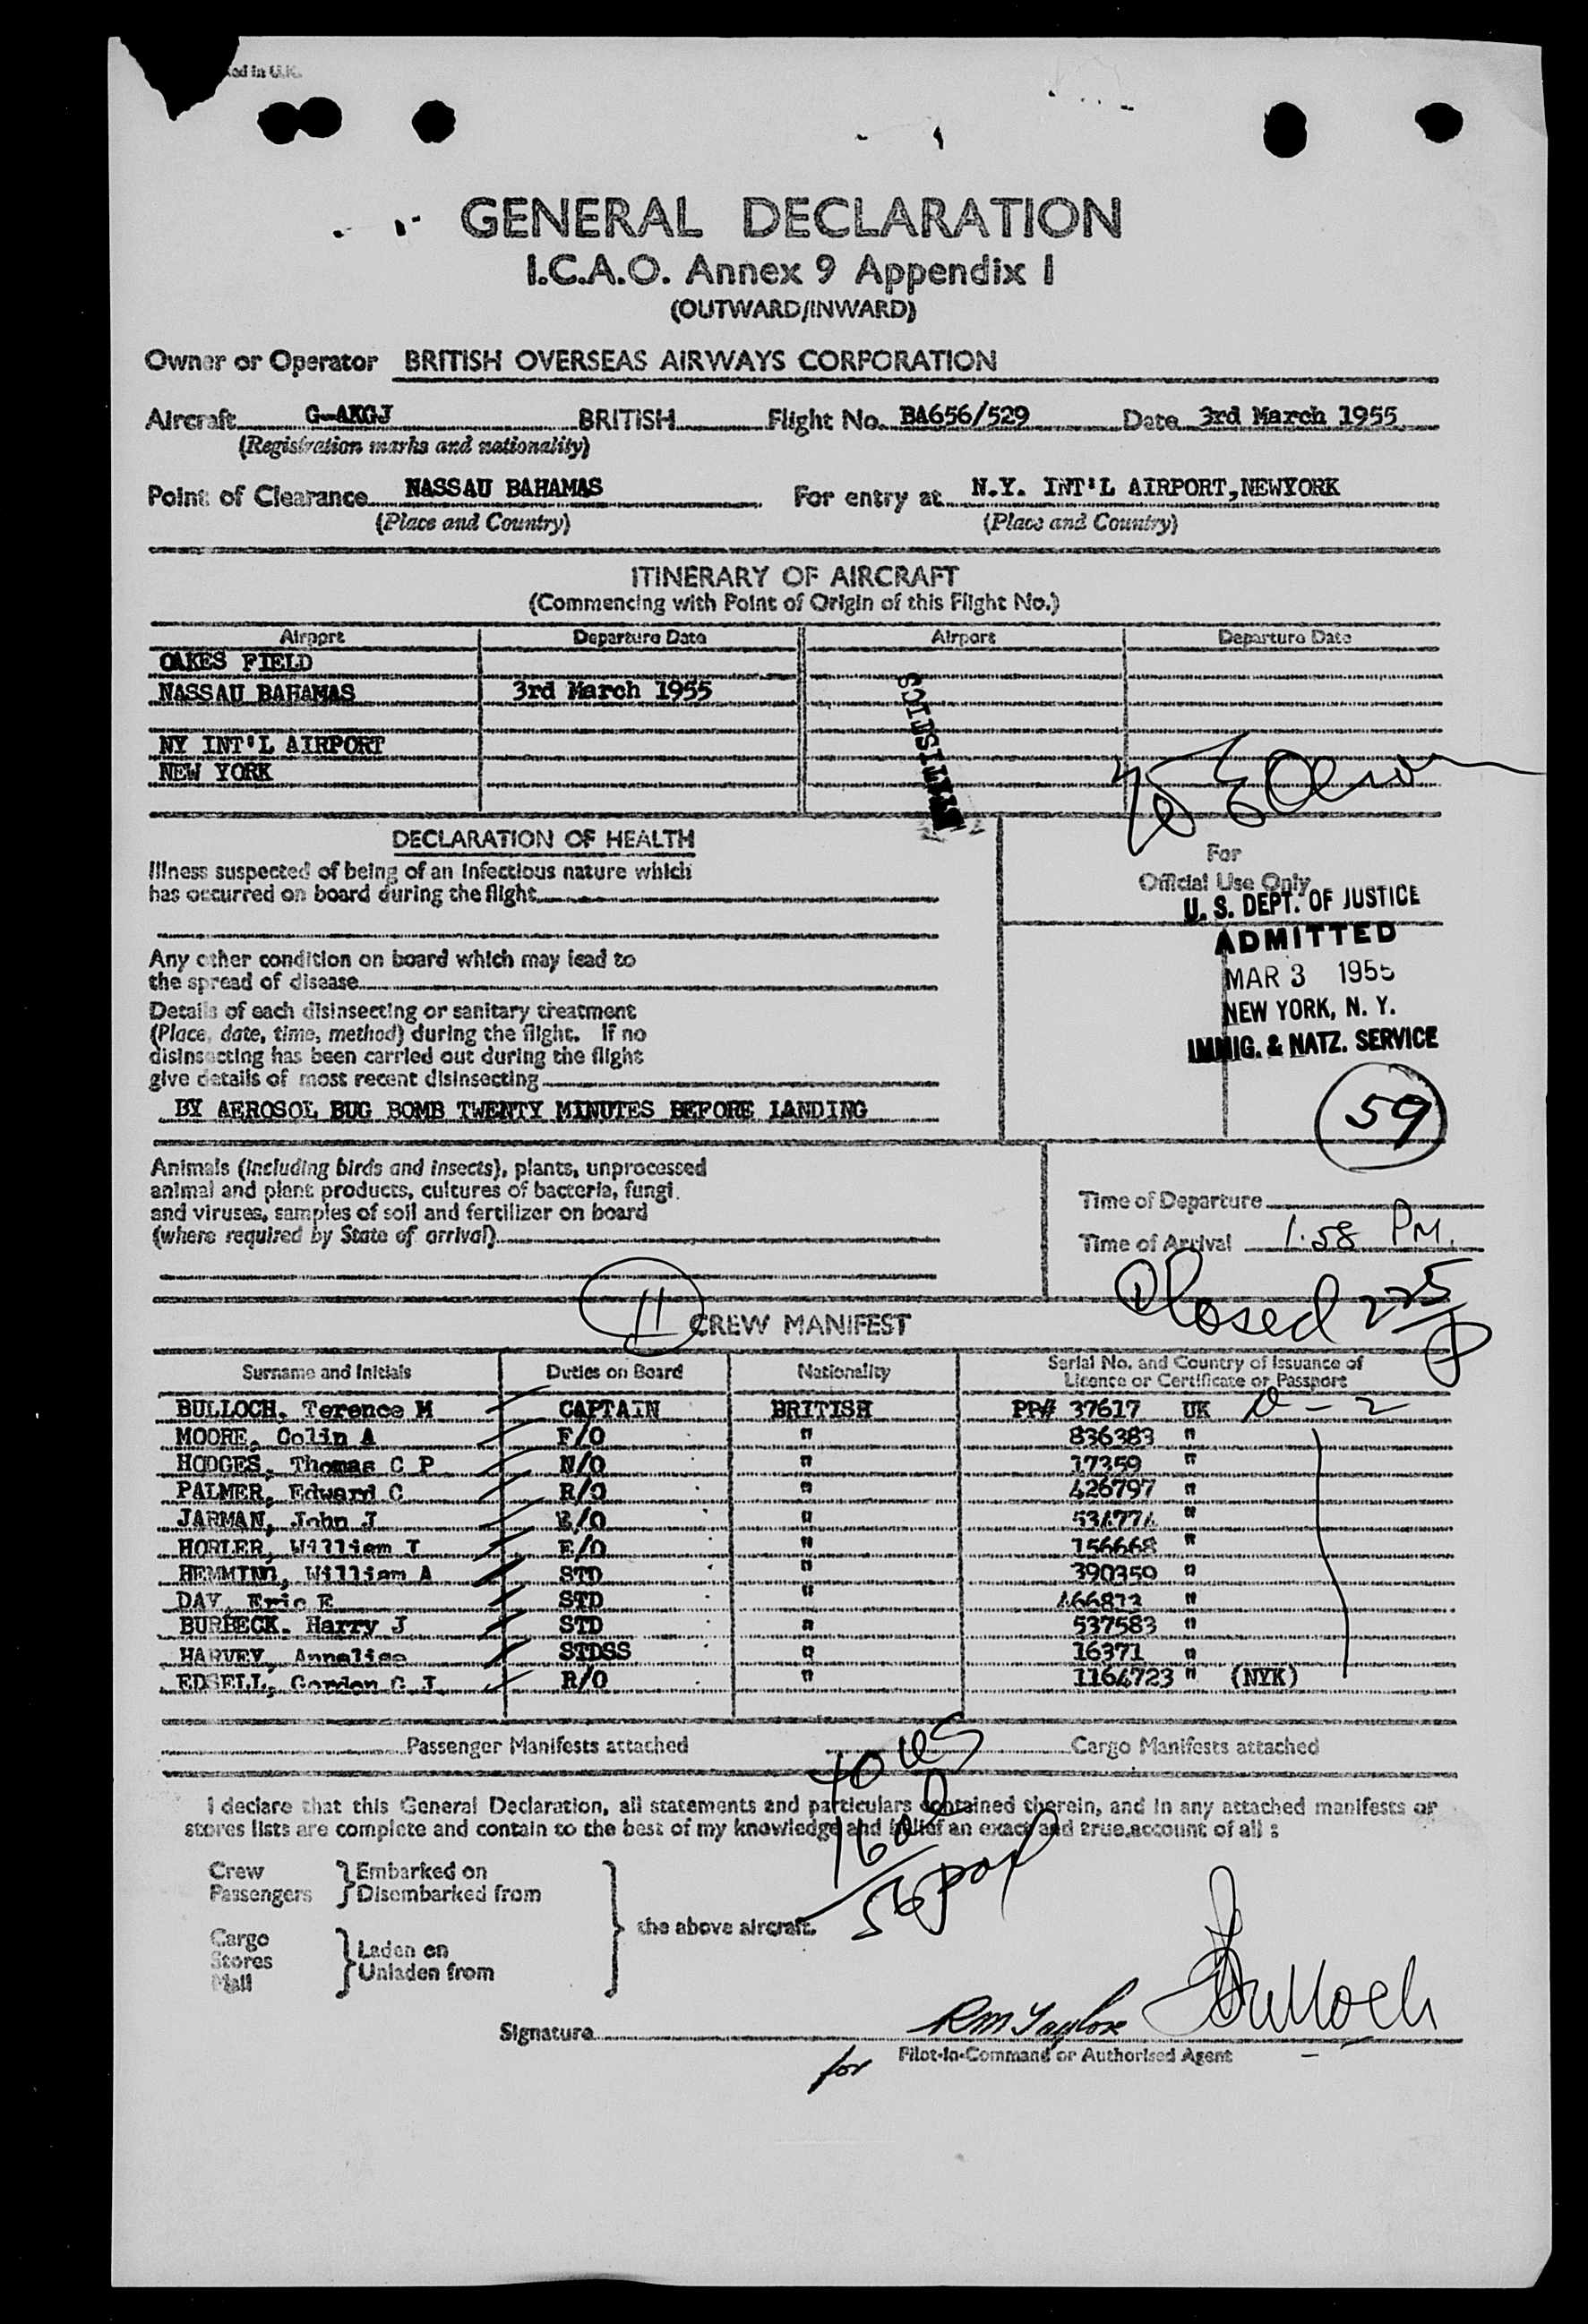 GENERAL DECLARATION
I.C.A.O. Annex 9 Appendix I
(OUTWARD/INWARD)
Owner or Operator BRITISH OVERSEAS AIRWAYS CORPORATION
Aircraft G-AKGJ BRITISH Flight No. BA656/529 Date 3rd March 1955
(Registration marks and nationality)
Point of Clearance NASSAU BAHAMAS For entry at N.Y. INT'L AIRPORT, NEWYORK
(Place and Country) (Place and Country)
ITINERARY OF AIRCRAFT
(Commencing with Point of Origin of this Flight No.)
Airport Departure Date Airport Departure Date
OAKES FIELD
NASSAU BAHAMAS 3rd March 1955
NY INT'L AIRPORT
NEW YORK
STATISTICS
DECLARATION OF HEALTH
Illness suspected of being of an infectious nature which
has occurred on board during the flight
Any other condition on board which may lead to
the spread of disease
Details of each disinsecting or sanitary treatment
(Place, date, time, method) during the flight. If no
disinsecting has been carried out during the flight
give details of most recent disinsecting
BY AEROSOL BUG BOMB TWENTY MINUTES BEFORE LANDING
For
Official Use Only
U. S. DEPT. OF JUSTICE
ADMITTED
MAR 3 1955
NEW YORK, N. Y.
IMMIG. & NATZ. SERVICE
59
Animals (including birds and insects), plants, unprocessed
animal and plant products, cultures of bacteria, fungi
and viruses, samples of soil and fertilizer on board
(where required by State of arrival)
Time of Departure
Time of Arrival 1.58 PM.
Closed 225
11
CREW MANIFEST
Surname and Initials Duties on Board Nationality Serial No. and Country of Issuance of
Licence or Certificate or Passport
BULLOCH. Terence M CAPTAIN BRITISH PP# 37617 UK D-2
MOORE, Colin A F/O " 836383 "
HODGES, Thomas C P N/O " 17359 "
PALMER, Edward C R/O " 426797 "
JARMAN, John J E/O " 534774 "
HORLER, William T E/O " 156668 "
HEMMING, William A STD " 390350 "
DAY, Eric E STD " 466813 "
BURBECK. Harry J STD " 537583 "
HARVEY, Annalise STDSS " 16371 "
EDSELL, Gordon G J R/O " 1164723 " (NYK)
Passenger Manifests attached Cargo Manifests attached
40 US
16
56 pax
I declare that this General Declaration, all statements and particulars contained therein, and in any attached manifests or
stores lists are complete and contain to the best of my knowledge and belief an exact and true account of all :
Crew
Passengers
Embarked on
Disembarked from
Cargo
Stores
Mail
Laden on
Unladen from
the above aircraft.
Signature RM Taylor Bulloch
for Pilot-in-Command or Authorised Agent